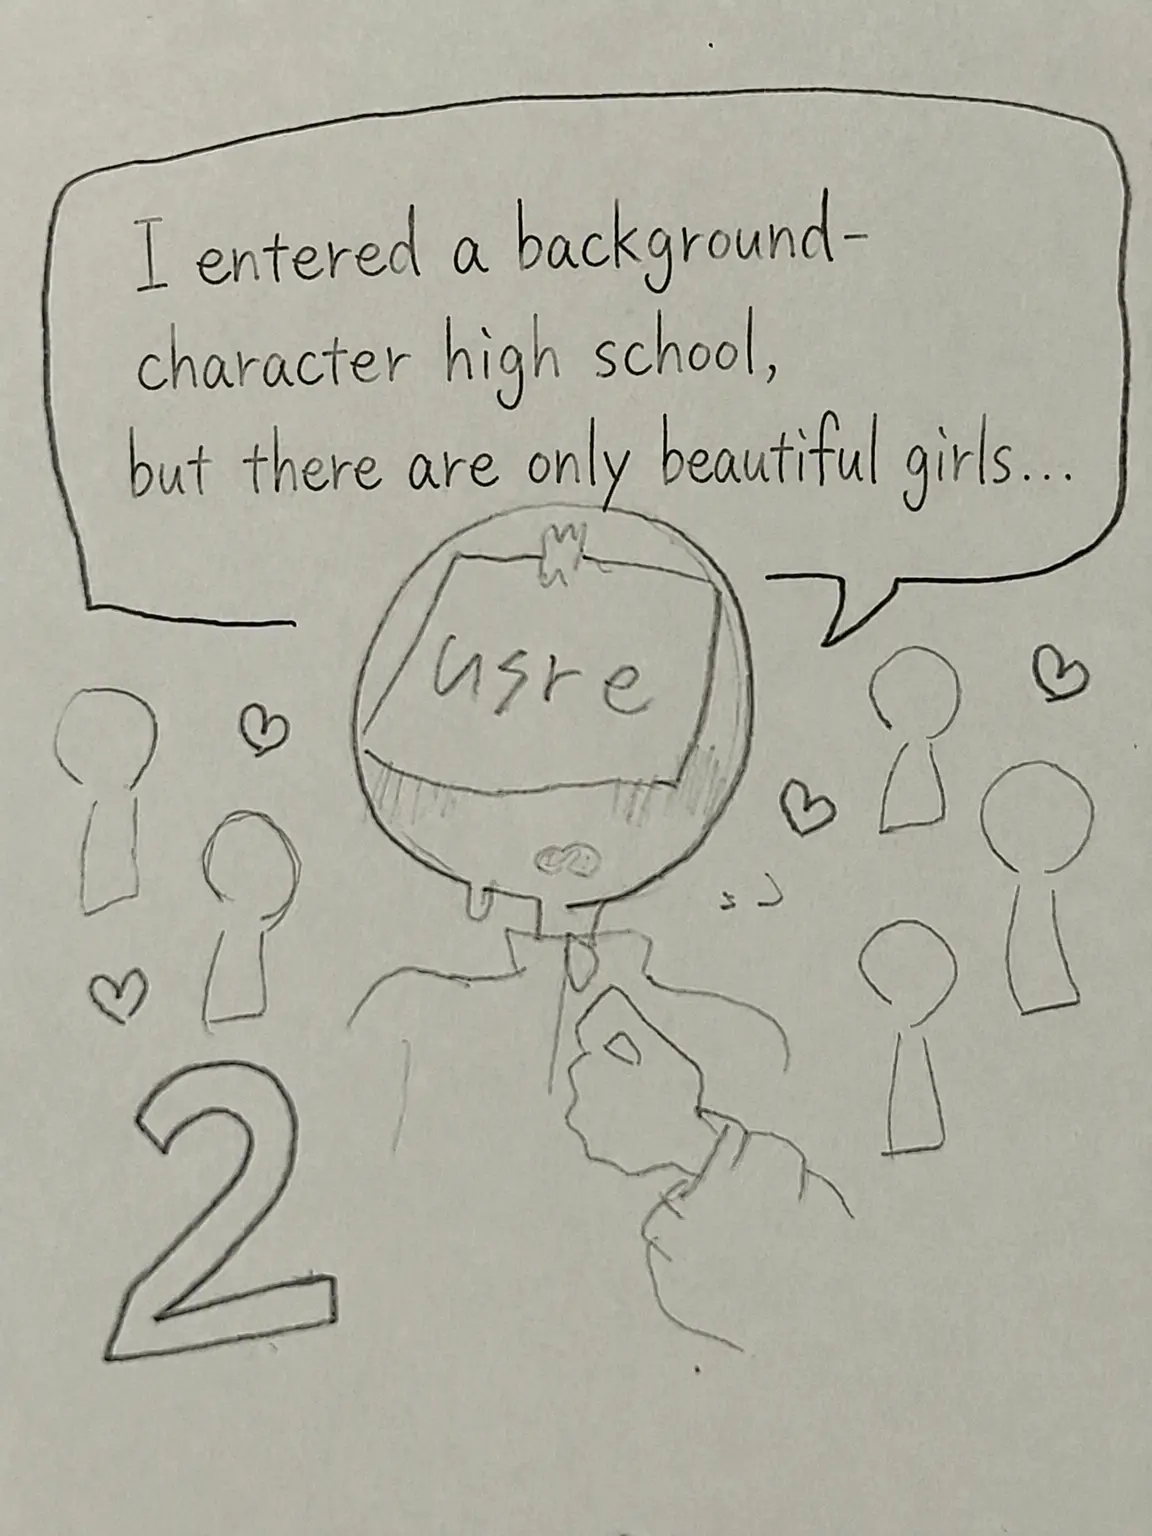 I entered a background-
character high school,
but there are only beautiful girls...
usre
2